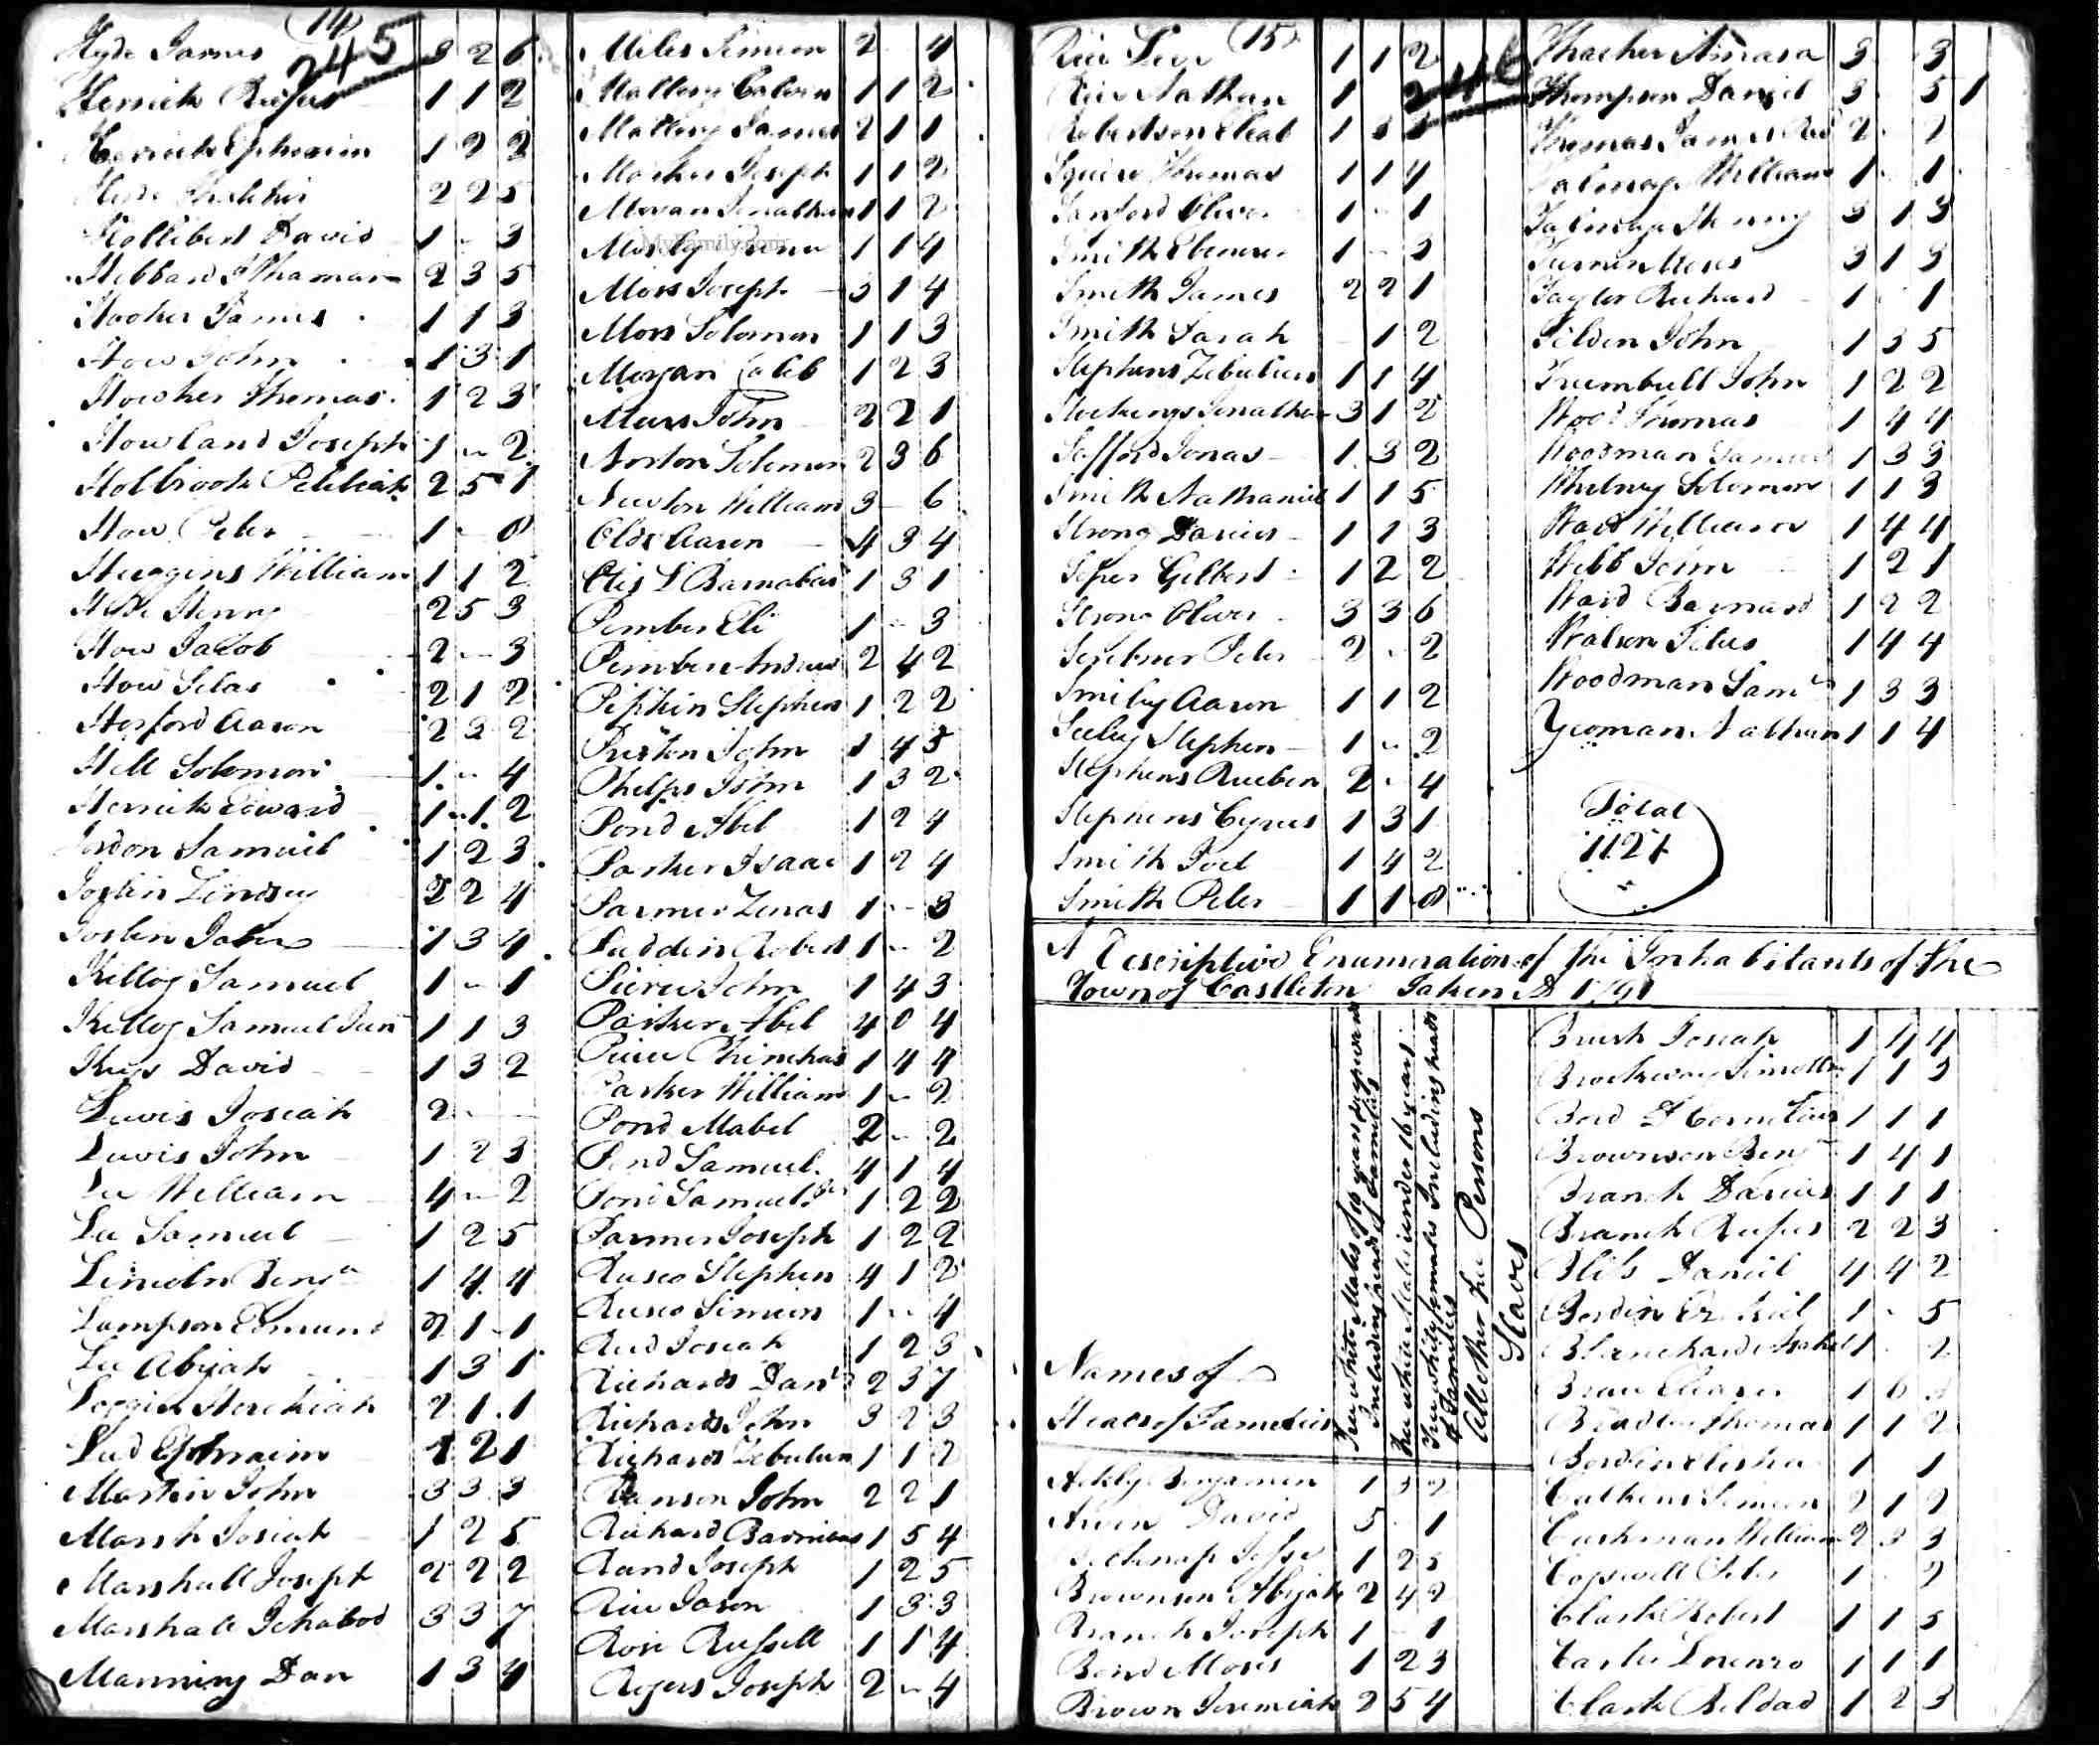 (14)
245
Hyde James 3 2 6
Herrick Rufus 1 1 2
Herrick Ephraim 1 2 2
2 2 5
Hollibert David 1 - 3
Hebbard Ithamar 2 3 5
Hooker James 1 1 3
How John 1 3 1
Thomas 1 2 3
Howland Joseph 1 - 2
Holbrook 2 5 1
How Peter 1 - 0
Huggins William 1 1 2
Henry 2 5 3
How Jacob 2 - 3
How Silas 2 1 2
Horsford Aaron 2 3 2
Hill Solomon 1 - 4
Herrick Edward 1 1 2
Jordon Samuel 1 2 3
Joslin Lindsey 2 2 4
Joslin 1 3 4
Kellog Samuel 1 - 1
Kellog Samuel Jun 1 1 3
Keys David 1 3 2
Lewis Josiah 2 -
Lewis John 1 2 3
Lee William 4 - 2
Lee Samuel 1 2 5
Lincoln Benja 1 4 4
Lampson Edmund 2 1 1
Lee Abijah 1 3 1
Hezekiah 2 1 1
Ephraim 1 2 1
Martin John 3 3 3
Marsh Josiah 1 2 5
Marshall Joseph 2 2 2
Marshall Ichabod 3 3 7
Manning Dan 1 3 4
Miles Simeon 2 4
Mallory Calvin 1 1 2
Mallory James 2 1 1
Joseph 1 1 2
Moran Jonathan 1 1 2
MyFamily.com
1 1 4
Mors Joseph 3 1 4
Mors Solomon 1 1 3
Morgan Caleb 1 2 3
Mears John 2 2 1
Norton Solomon 2 3 6
Newton William 3 - 6
Olds Aaron 4 3 4
Otis L Barnabas 1 3 1
Pember Eli 1 - 3
Pember Andrew 2 4 2
Pipkin Stephen 1 2 2
Preston John 1 4 5
Phelps John 1 3 2
Pond Abel 1 2 4
Parker Isaac 1 2 4
Parmer Zenas 1 - 3
Robert 1 - 2
Pierce John 1 4 3
Parker Abel 4 0 4
Phinehas 1 4 4
Parker William 1 - 2
Pond Mabel 2 - 2
Pond Samuel 4 1 4
Pond Samuel Jur 1 2 2
Parmer Joseph 1 2 2
Rusco Stephen 4 1 2
Rusco Simeon 1 - 4
Reed Josiah 1 2 3
Richards Danl 2 3 7
Richards John 3 2 3
Richards Zebulun 1 1 2
Ranson John 2 2 1
Richard 1 5 4
Rand Joseph 1 2 5
Rice Jason 1 3 3
Rose Russell 1 1 4
Rogers Joseph 2 - 4
(15)
246
Rice 1 1 2
Rice Nathan 1 2
Robertson 1 3
Squire Thomas 1 1 4
Sanford Oliver 1 - 1
Smith Ebenezer 1 - 3
Smith James 2 2 1
Smith Sarah 1 2
Stephens Zebulun 1 1 4
Jonathan 3 1 2
Safford Jonas 1 3 2
Smith Nathaniel 1 1 5
Strong Darius 1 1 3
Soper Gilbert 1 2 2
Strong Oliver 3 3 6
Scribner Peter 2 - 2
Smiley Aaron 1 1 2
Seeley Stephen 1 - 2
Stephens Rueben 2 - 4
Stephens Cyrus 1 3 1
Smith Joel 1 4 2
Smith Peter 1 1 0
Thacher Amasa 3 3
Thompson Daniel 3 5 1
Thomas James 2 - 2
Talmage William 1 - 1
Talmage Henry 3 1 3
Turner Moses 3 1 3
Taylor Richard 1 1
Tilden John 1 3 5
Trumbull John 1 2 2
Wood Thomas 1 4 4
Woodman Samuel 1 3 3
Whitney Solomon 1 1 3
Ward William 1 4 4
Webb John 1 2 1
Ward Barnard 1 2 2
Watson Titus 1 4 4
Woodman Saml 1 3 3
Yeoman Nathan 1 1 4
Total
1121
A Descriptive Enumeration of the Inhabitants of the
Town of Castleton Taken A 1791
Names of
Heads of Families
Free white Males of 16 years & upwards
Including heads of Families
Free white Males under 16 years
Free white females Including heads
of Families
All other free Persons
Slaves
Ackly Benjamin 1 3 2
David 5 - 1
Belknap Jesse 1 2 5
Brownson Abijah 2 4 2
Branch Joseph 1 - 1
Bond Moses 1 2 3
Brown Jeremiah 2 5 4
Brush Josiah 1 4 4
Brockway 1 1 3
Bord Cornelius 1 1 1
Brownson Benj 1 4 1
Branch Darius 1 1 1
Branch Rufus 2 2 3
Blis Daniel 4 4 2
1 - 5
Blanchard Asahel 1 - 2
1 6
Bradley Thomas 1 1 2
Elisha 1 1
Calkens Simeon 2 1 2
Cushman William 2 3 3
Cogswell Peter 1 - 2
Clark Robert 1 1 5
Carter Lorenzo 1 1 1
Clark Bildad 1 2 3